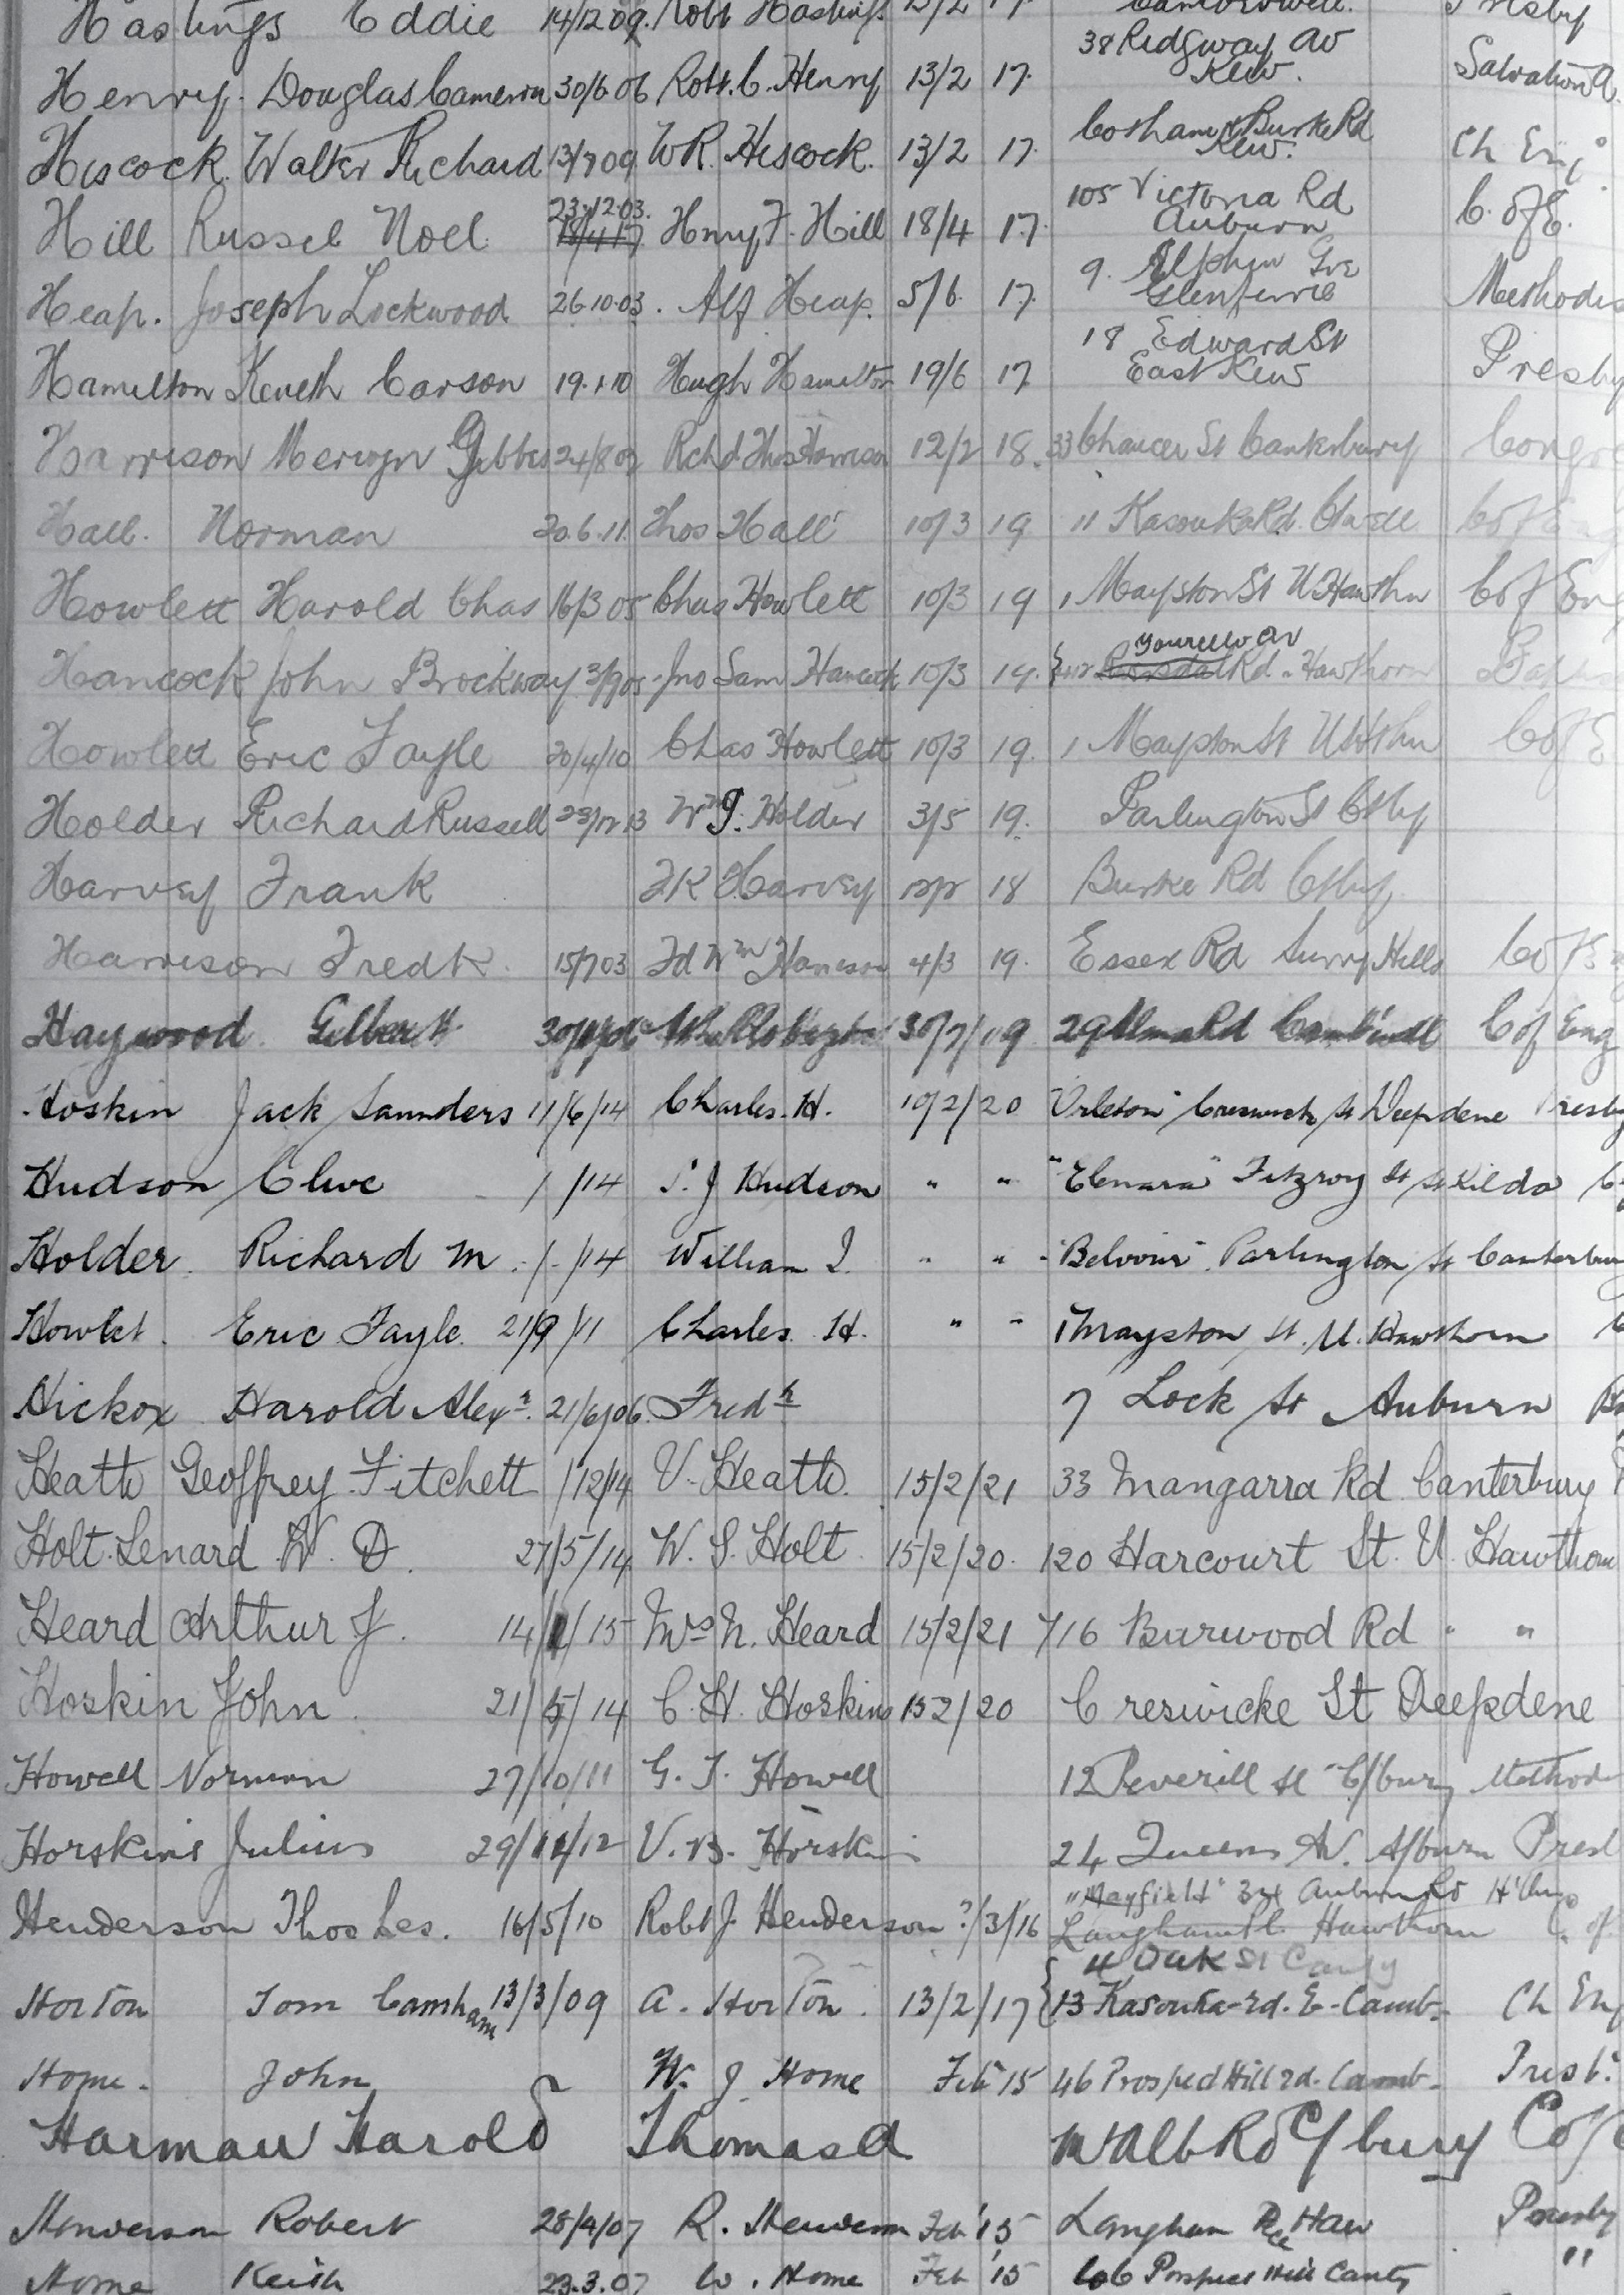 Hastings Eddie 14/12 09. Robt Hastings 13/2 17. Camberwell. Presby
Henry. Douglas Cameron 30/6 06 Robt. C. Henry 13/2 17. 38 Ridgway Av Kew. Salvation A.
Hiscock. Walter Richard 13/7 09 W R. Hiscock. 13/2 17. Cotham & Burke Rd Kew. Ch Eng
23.12.03.
Hill Russel Noel 18/4 17 Henry F. Hill 18/4 17. 105 Victoria Rd Auburn C. of E.
Heap. Joseph Lockwood 26.10.03. Alf Heap. 5/6 17. 9. Elphin Gve Glenferrie Methodis
Hamilton Keneth Carson 19.1.10 Hugh Hamilton 19/6 17. 18 Edward St East Kew Presby
Harrison Mervyn Gibbes 24/8 Richd Thos Harrison 12/2 18. 33 Chaucer St Canterbury Congre
Hall. Norman 20.6.11. Thos Hall 10/3 19 11 Kasouka Rd. C'well C of Eng
Howlett Harold Chas 16/3 05 Chas Howlett 10/3 19 1 Mayston St U Hawthn C of Eng
Yourell Av
Hancock John Brockway 13/9 05 Jno Sam Hancock 10/3 19. Rd. Hawthorn Bapt
Howlett Eric Fayle 20/4/10 Chas Howlett 10/3 19. 1 Mayston St U Hthn C of E
Holder Richard Russell 23/12 13 Wm J. Holder 3/5 19. Parlington St C'tby
Harvey Frank F K Harvey 18 Burke Rd C'tby
Harrison Fredk. 15/7 03 Fd Wm Harrison 4/3 19. Essex Rd Surry Hills C of E
Haywood Gilbert 30/7/19 29 Alma Rd Camb'well C of Eng
Hoskin Jack Saunders 11/6/14 Charles. H. 10/2/20 "Orleton" Creswick St Deepdene Presby
Hudson Clive / /14 S. J Hudson " " "Elenara" Fitzroy St St Kilda
Holder. Richard M. /-/14 William J. " " "Belvoir" Parlington St Canterbury
Howlet. Eric Fayle. 21/9/11 Charles. H. " " 1 Mayston St. U. Hawthorn
Hickox Harold Alexr. 21/6/06. Fredk 7 Lock St Auburn
Heath Geoffrey Fitchett 1/12/14 V. Heath. 15/2/21 33 Mangarra Rd Canterbury
Holt. Lenard W. D. 27/5/14 W. S. Holt 15/2/20. 120 Harcourt St. U. Hawthorn
Heard Arthur J. 14/1/15 Mrs N. Heard 15/2/21 716 Burwood Rd " "
Hoskin John. 21/5/14 C. H. Hoskins 15 2/20 Creswicke St Deepdene
Howell Norman 27/10/11 G. T. Howell 12 Peverill St C'/bury Method
Horskins Julius 29/11/12 V. B. Horskins 24 Queens Av. A/burn Presb
"Mayfield" 331 Auburn Rd H'thn
Henderson Thos Les. 16/5/10 Robt J. Henderson ?/3/16 Langham Pl. Hawthorn C. of
4 Oak St Canty
Horton Tom Camsham 13/3/09 A. Horton. 13/2/17 13 Kasouka-rd. E-Camb. Ch Eng
Home. John W. J Home Feb 15 46 Prospect Hill rd. Camb. Presb.
Harman Harold Thomas A Walb Rd C/bury C of
Henderson Robert 28/4/07 R. Henderson Feb '15 Langham Pce Haw Presby
Home Keith 23.3.07 W. Home Feb '15 Prospect Hill Canty "